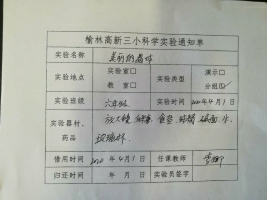 榆林高新三小科学实验通知单
实验名称 美丽的晶体
实验地点 实验室□ 教室□ 实验类型 演示□ 分组☑
实验班级 六年级 实验时间 年4月1日
实验器材、药品 放大镜 食盐 水 玻璃杯
借用时间 年4月1日 任课教师
归还时间 年 月 日 实验员签字